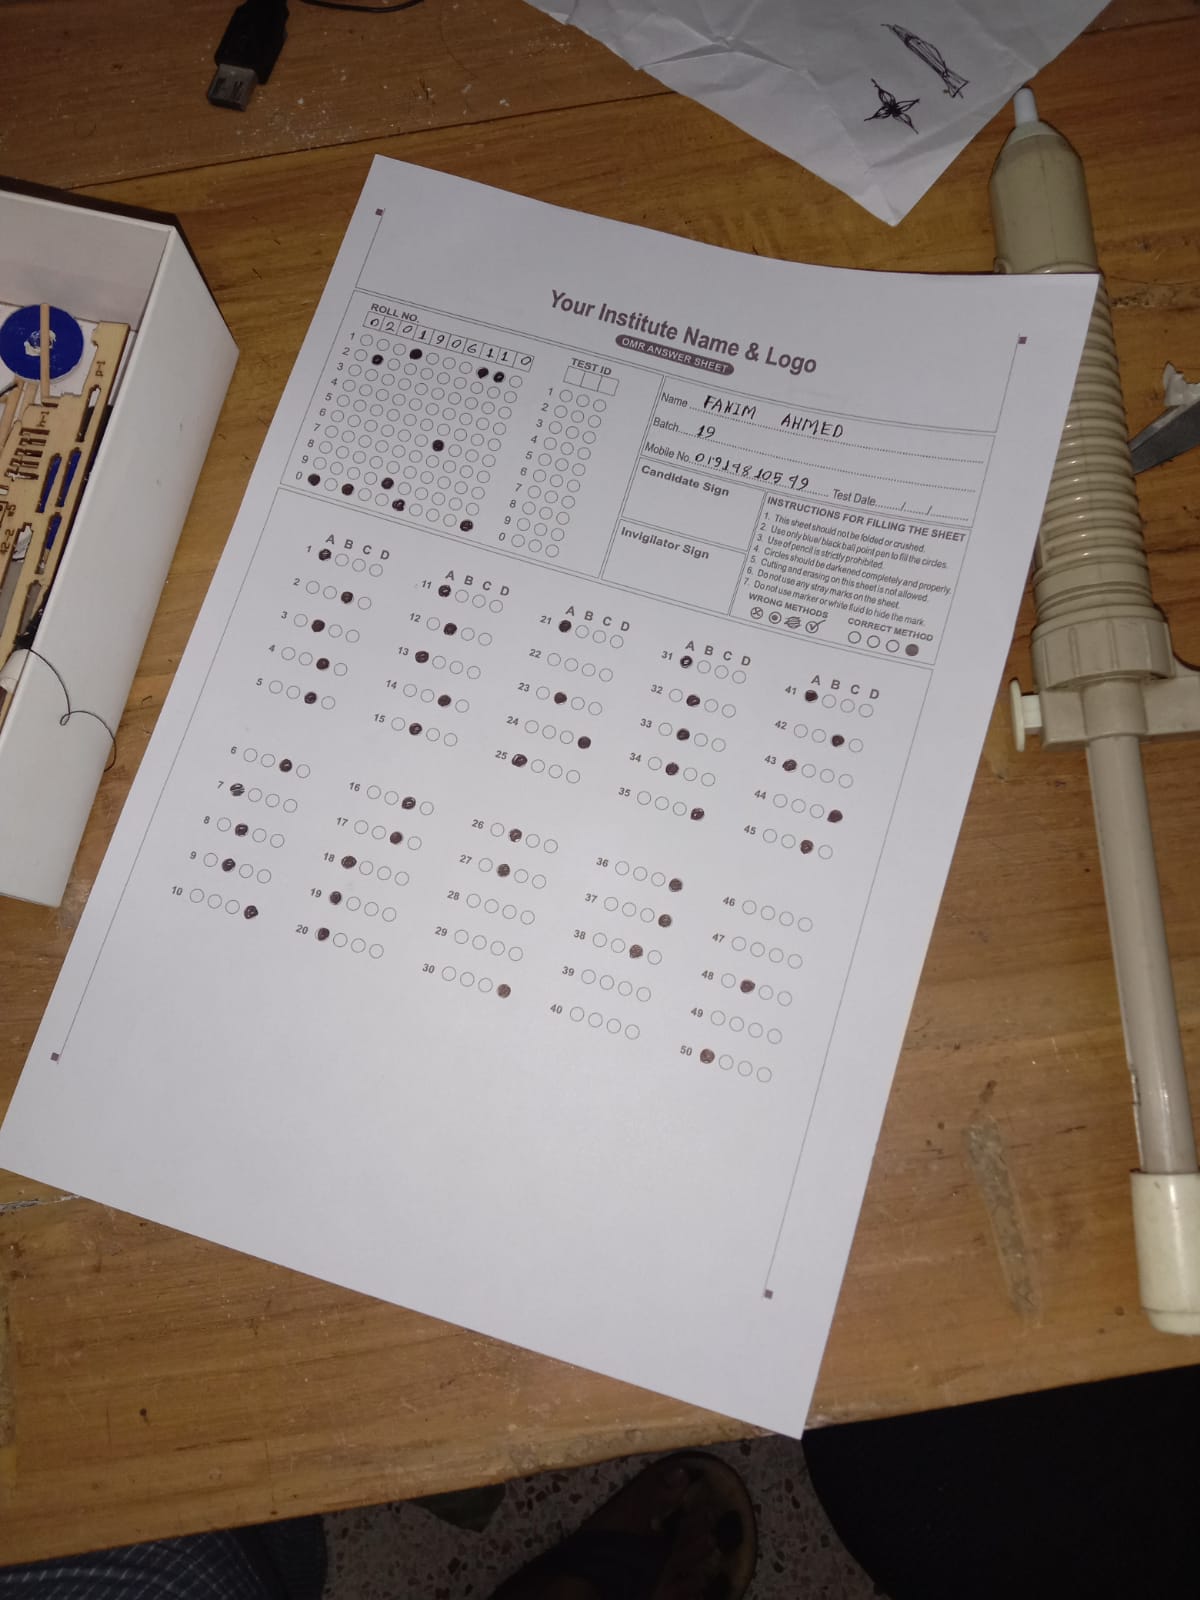 Your Institute Name & Logo
OMR ANSWER SHEET
ROLL NO.
0 2 0 1 9 0 6 1 1 0
1
2
3
4
5
6
7
8
9
0
TEST ID
1
2
3
4
5
6
7
8
9
0
Name FAHIM AHMED
Batch 19
Mobile No. 01919810599 Test Date / /
Candidate Sign
Invigilator Sign
INSTRUCTIONS FOR FILLING THE SHEET
1. This sheet should not be folded or crushed.
2. Use only blue/ black ball point pen to fill the circles.
3. Use of pencil is strictly prohibited.
4. Circles should be darkened completely and properly.
5. Cutting and erasing on this sheet is not allowed.
6. Do not use any stray marks on the sheet.
7. Do not use marker or white fluid to hide the mark.
WRONG METHODS
CORRECT METHOD
A B C D
1
2
3
4
5
6
7
8
9
10
A B C D
11
12
13
14
15
16
17
18
19
20
A B C D
21
22
23
24
25
26
27
28
29
30
A B C D
31
32
33
34
35
36
37
38
39
40
A B C D
41
42
43
44
45
46
47
48
49
50
p-1
h-1